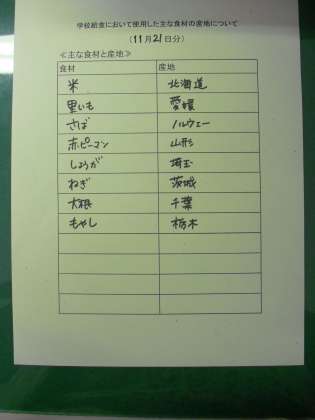 学校給食において使用した主な食材の産地について
（11月21日分）
≪主な食材と産地≫
食材 産地
米 北海道
里いも 愛媛
さば ノルウェー
赤ピーマン 山形
しょうが 埼玉
ねぎ 茨城
大根 千葉
もやし 栃木